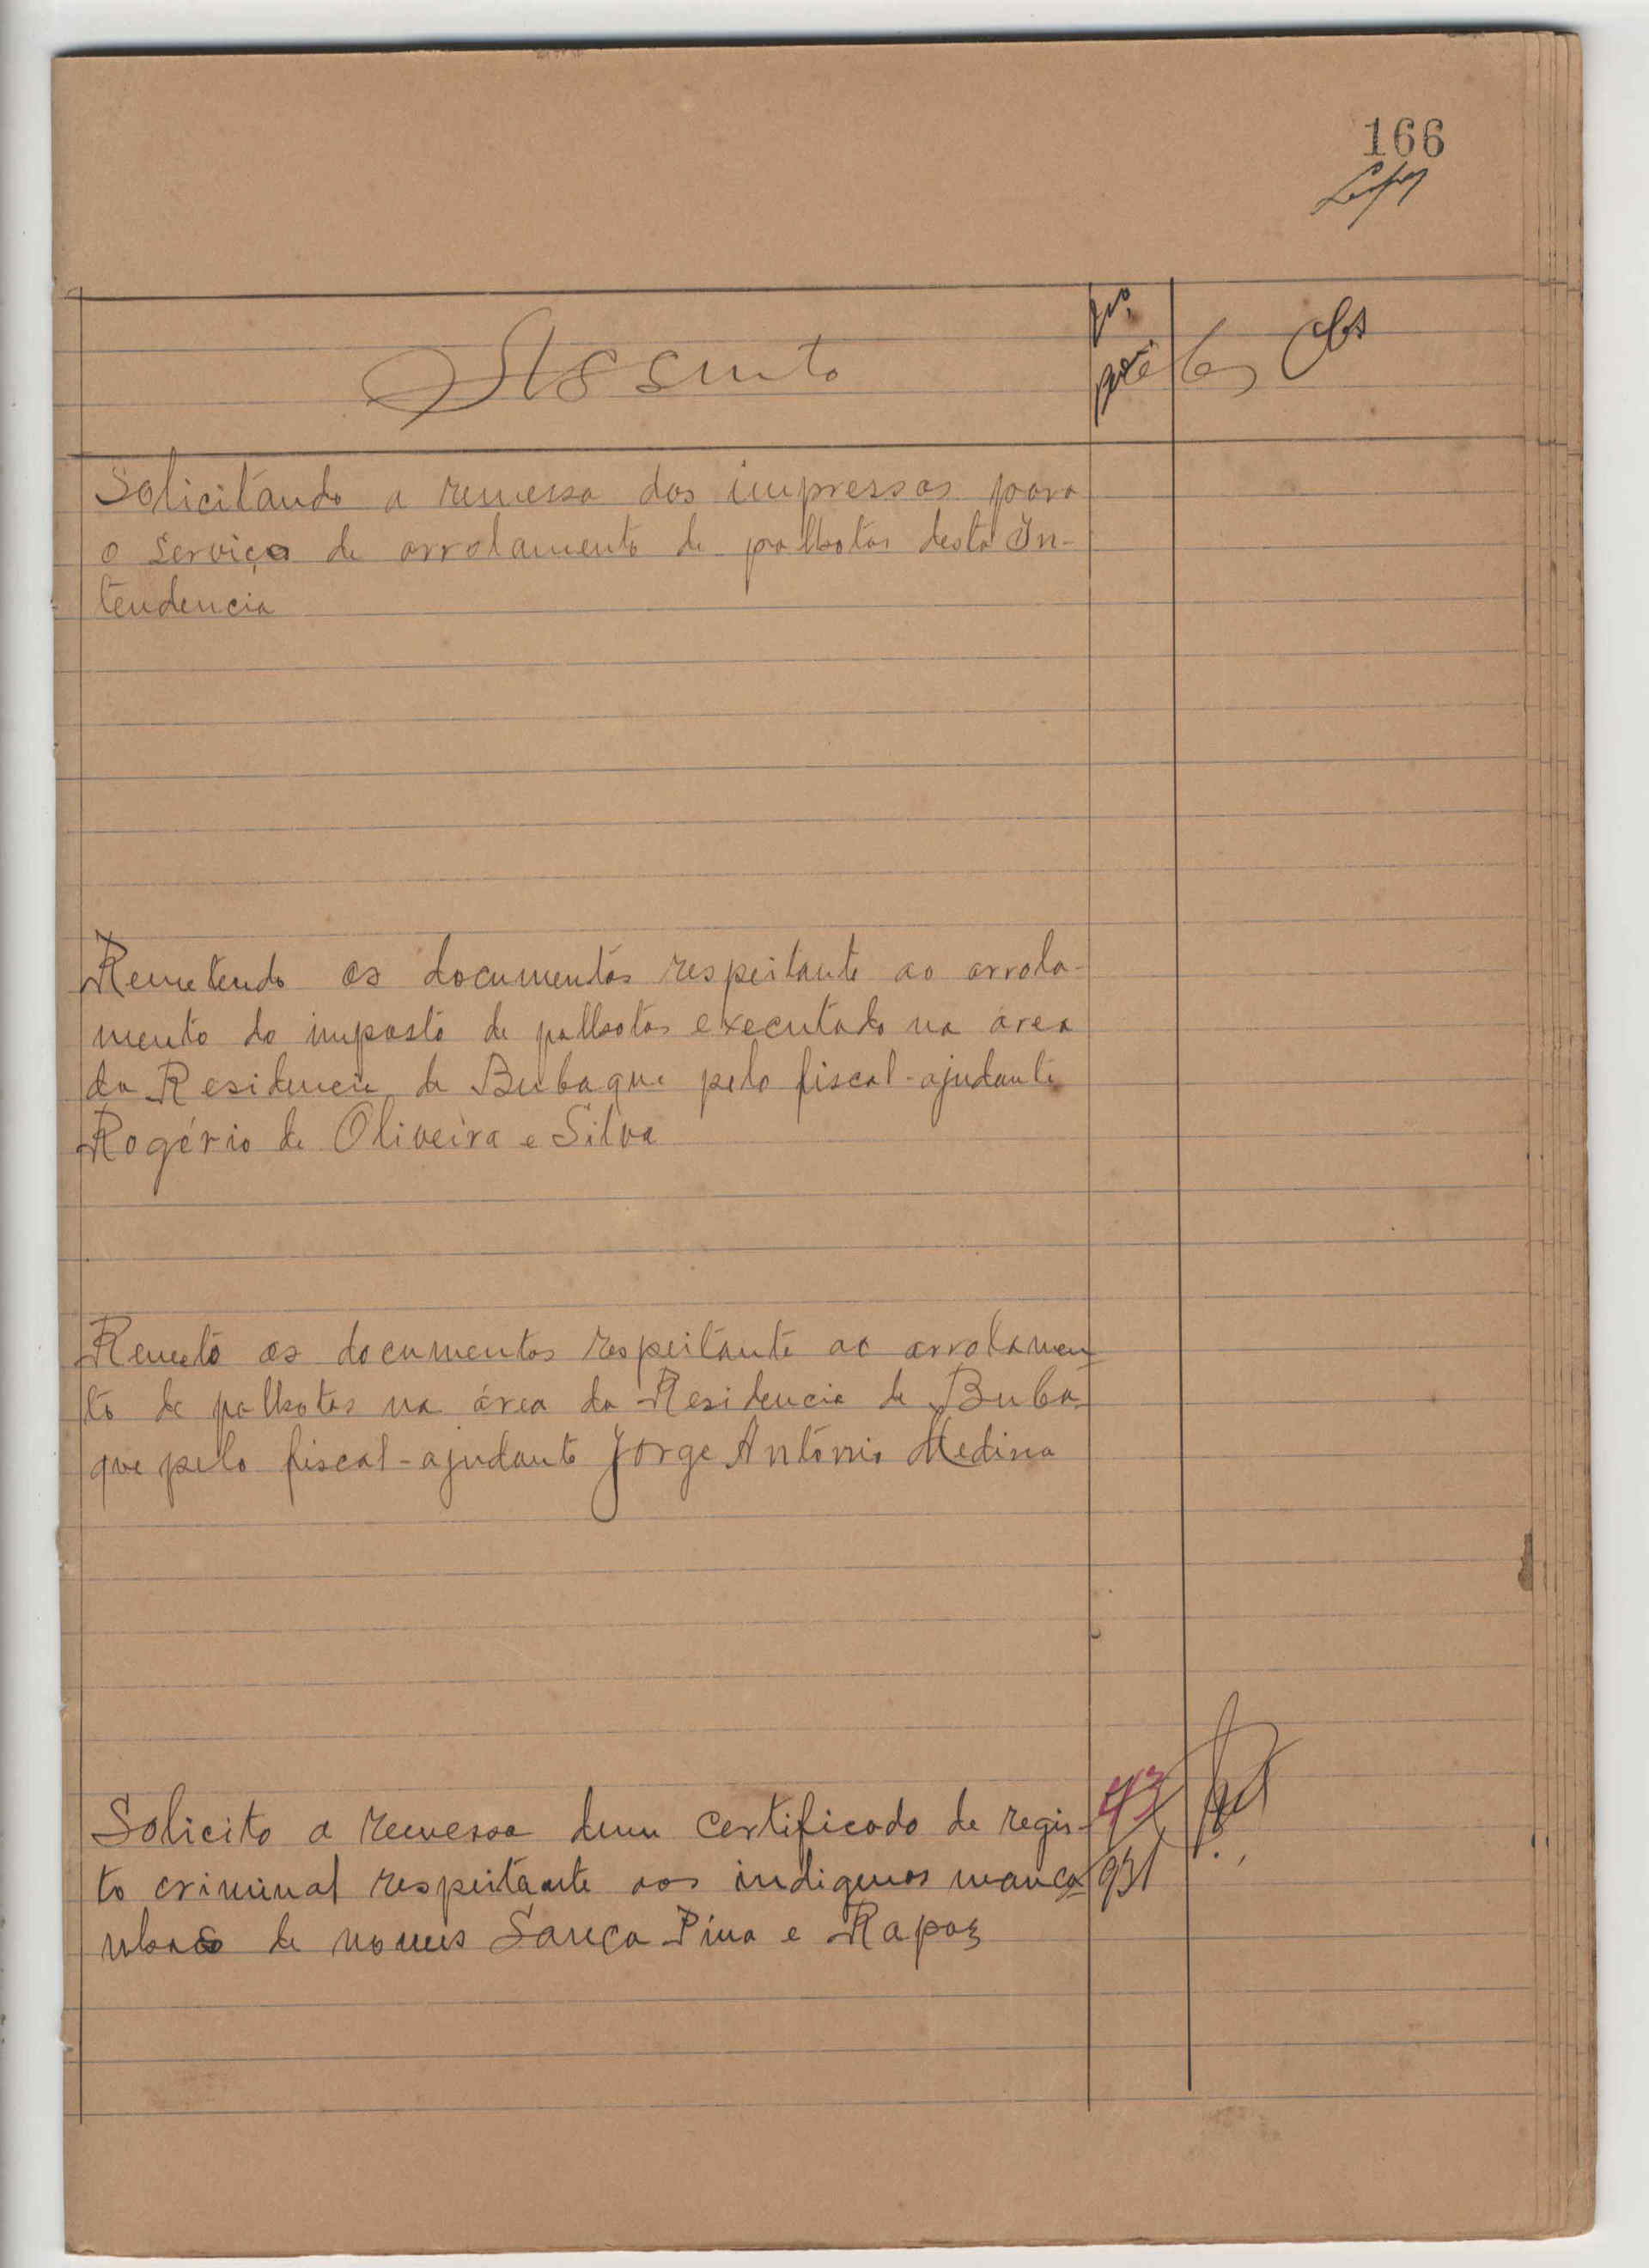 166
Assunto
Obs
Solicitando a remessa dos impressos para
o serviço de arrolamento de palhotas desta In-
tendencia
Remetendo os documentos respeitante ao arrola-
mento do imposto de palhotas executado na área
da Residencia de Bubaque pelo fiscal-ajudante
Rogério de Oliveira e Silva
Remeto os documentos respeitante ao arrolamen
to de palhotas na área da Residencia de Buba-
que pelo fiscal-ajudante Jorge António Medina
Solicito a remessa dum certificado de regis- 43
to criminal respeitante aos indigenas manca 931
nhas de nomes Sanca Pina e Rapaz